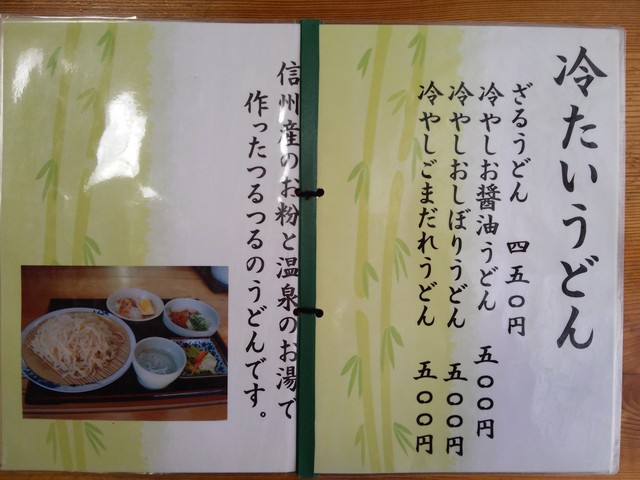 冷たいうどん
ざるうどん 四五〇円
冷やしお醤油うどん 五〇〇円
冷やしおしぼりうどん 五〇〇円
冷やしごまだれうどん 五〇〇円
信州産のお粉と温泉のお湯で
作ったつるつるのうどんです。